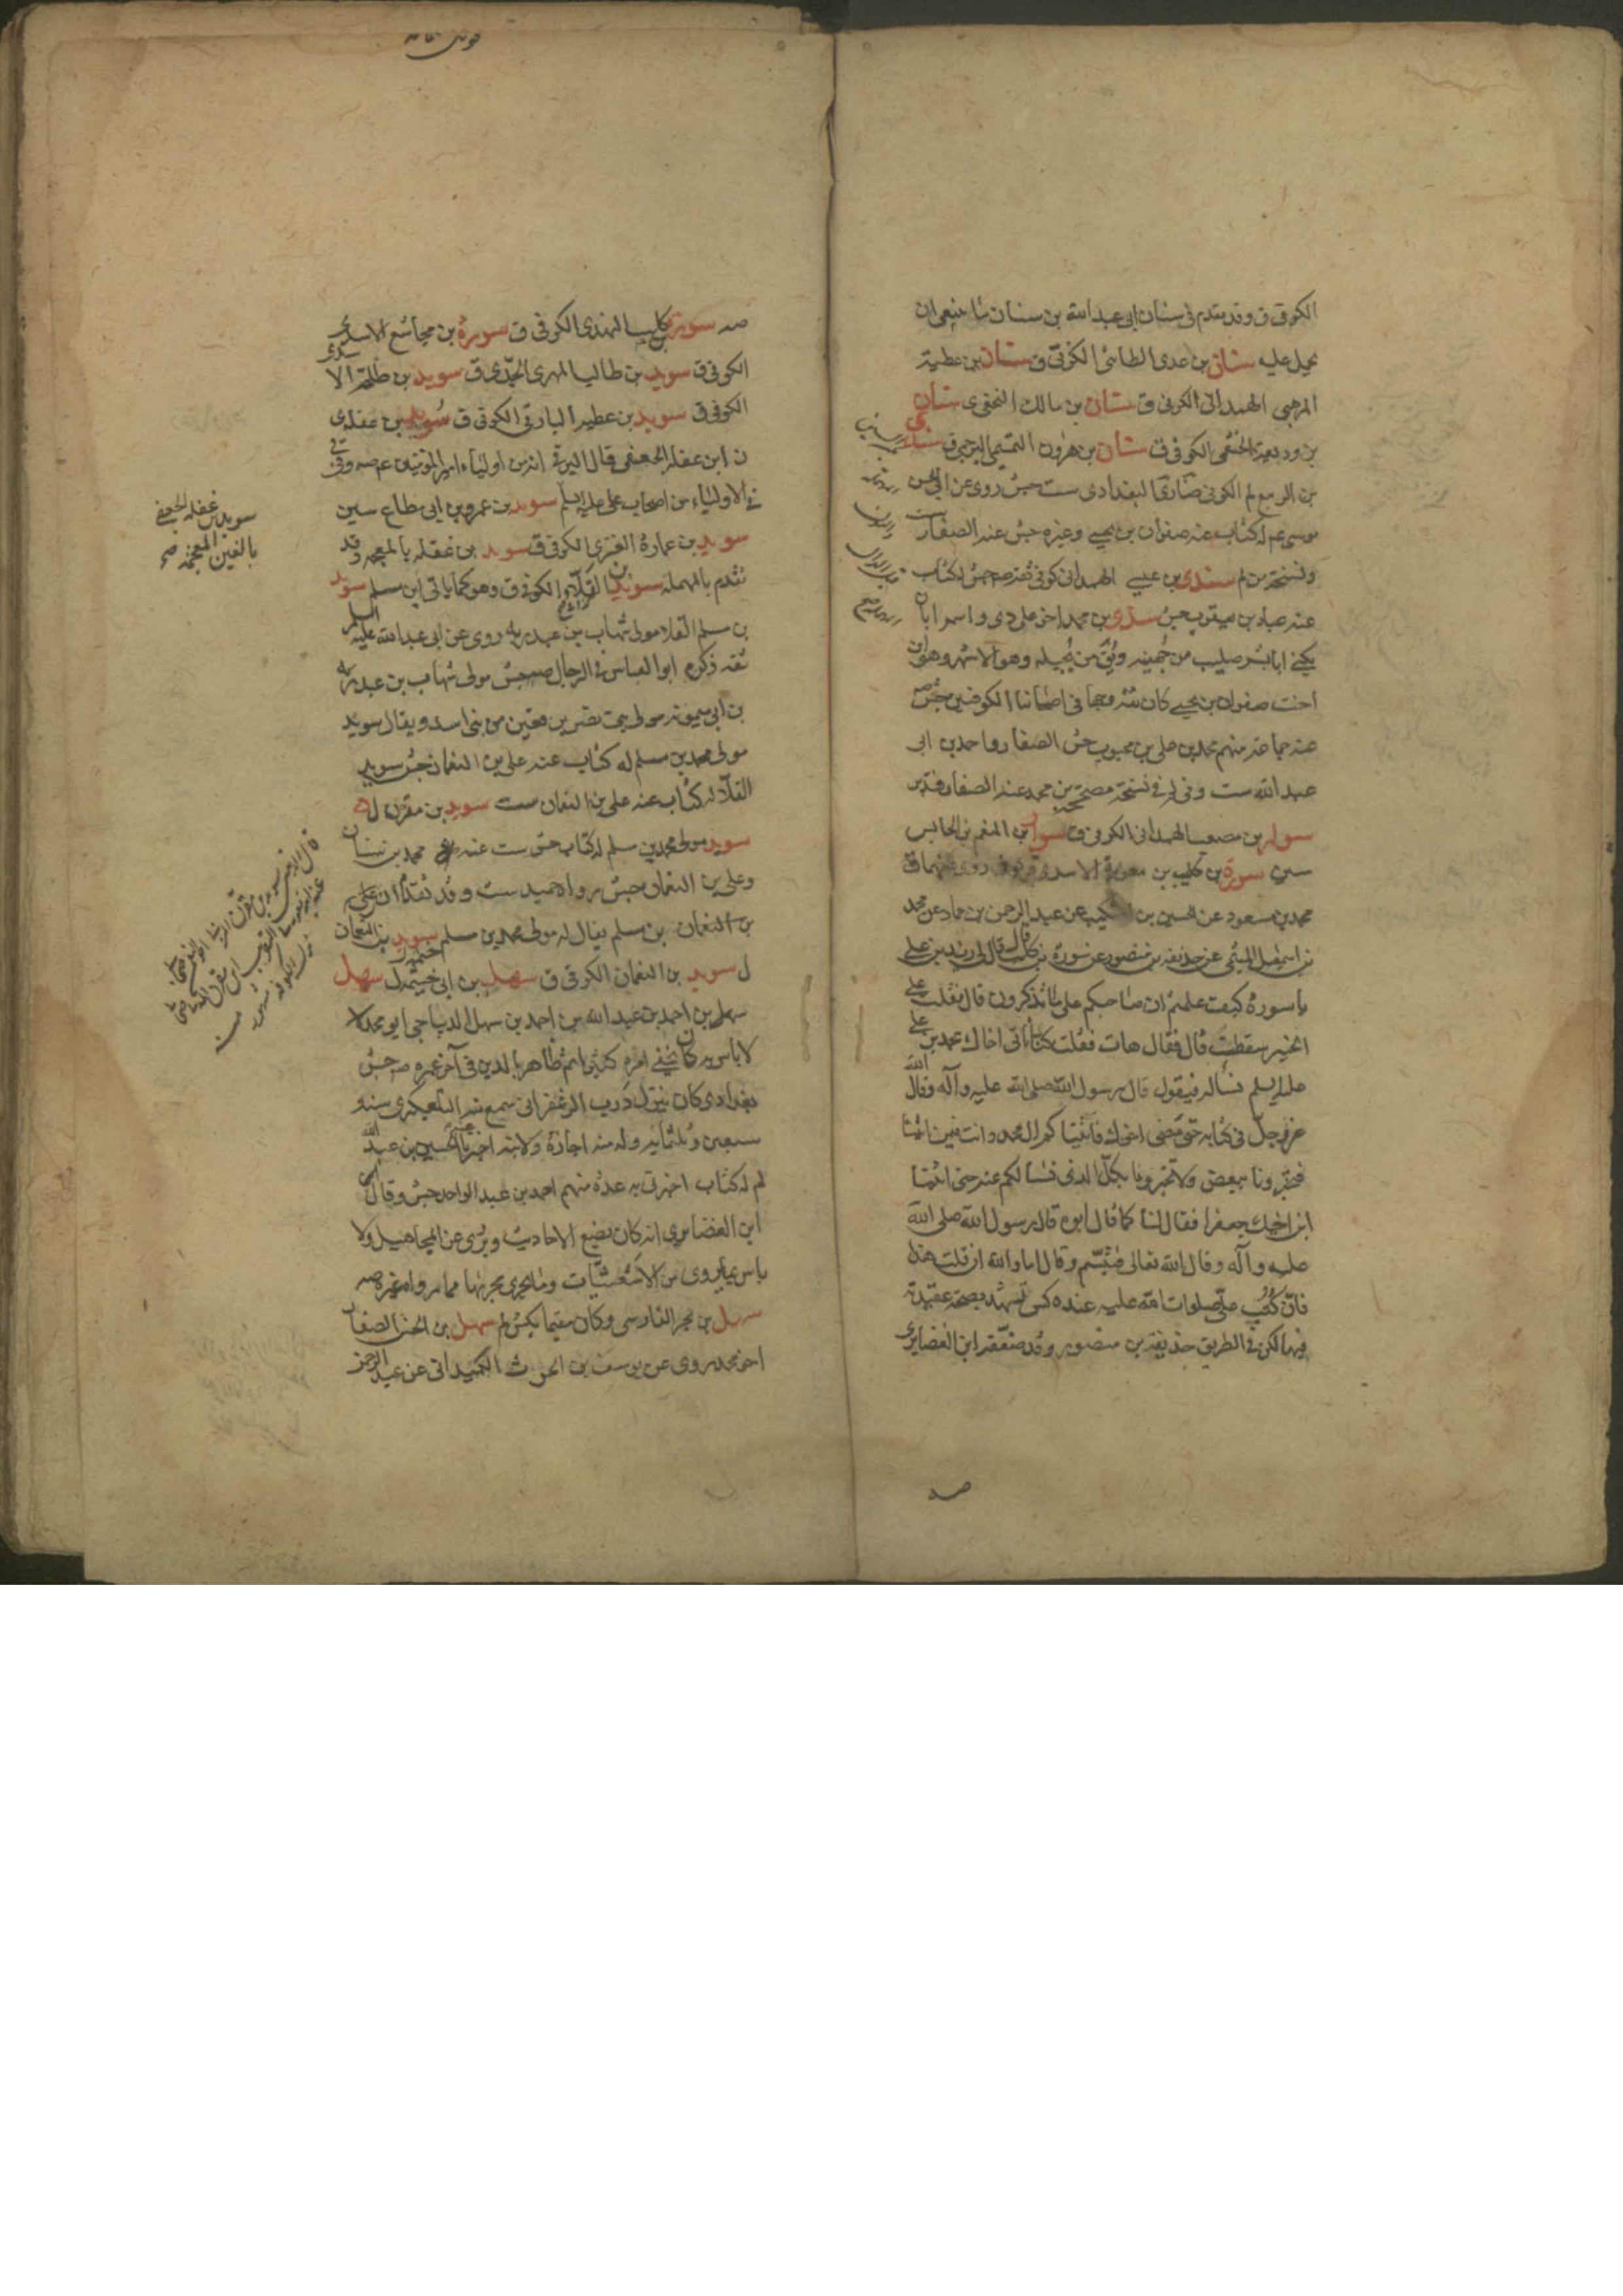 الكوفي ق وقد تقدم في سنان ابي عبد الله بن سنان ما ينبغي ان
يحمل عليه سنان بن عدي الطائي الكوفي ق سنان بن عطية
المرهبي الهمداني الكوفي ق سنان بن مالك النخعي ي سنان
بن وديعة الخثعمي الكوفي ق سنان بن هرون التميمي البرجمي ق سندي
بن الربيع لم الكوفي ضا ري البغدادي ست جش روى عن ابي الحسن
موسى عم له كتاب عنه صفوان بن يحيى وغيره جش عنه الصفار ست
وفي نسخة من لم سندي بن عيسى الهمداني كوفي ثقة صه جش له كتاب
عنه عباد بن يعقوب جش سندي بن محمد اخو علي دي واسمه ابان
يكنى ابا بشر صليب من جهينة ويق من بجيلة وهو الاشهر وهو ابن
اخت صفوان بن يحيى كان ثقة وجها في اصحابنا الكوفيين جش صه
عنه جماعة منهم محمد بن علي بن محبوب جش الصفار واحمد بن ابي
عبد الله ست وفي لم في نسخة مصححة بن محمد عنه الصفار
سوار بن مصعب الهمداني الكوفي ق سوار بن المنعم بن الحابس
سين سورة بن كليب بن معوية الاسدي قر وفي ق روى عنهما ق
محمد بن مسعود عن الحسين بن اشكيب عن عبد الرحمن بن حماد عن محمد
بن اسمعيل الميثمي عن حذيفة بن منصور عن سورة بن كليب قال قال لي زيد بن علي
يا سورة كيف علمتم ان صاحبكم على ما تذكرون قال فقلت على
الخبير سقطت قال فقال هات فقلت كنا ناتي اخاك محمد بن علي
عليه السلم نساله فيقول قال رسول الله صلى الله عليه وآله وقال الله
عز وجل في كتابه حتى مضى اخوك فاتينا كم ال محمد وانت فيمن اتينا
فتخبرونا ببعض ولا تخبرونا بكل الذي نسالكم عنه حتى اتينا
ابن اخيك جعفرا فقال لنا كما قال ابوه قال رسول الله صلى الله
عليه وآله وقال الله تعالى فتبسم وقال اما والله ان قلت هذا
فان كتب علي صلوات الله عليه عنده كش تشهد بصحة عقيدته
فيها لكن في الطريق حذيفة بن منصور وقد ضعفه ابن الغضايري
صه
صه سورة بن كليب النهدي الكوفي ق سورة بن مجاشع الاسدي
الكوفي ق سويد بن طالب المهري الجدي ق سويد بن طلحة الاسدي
الكوفي ق سويد بن عطية البارقي الكوفي ق سويد بن عفلة ي
ن ابن عفلة الجعفي قال البرقي انه من اولياء امير المؤمنين عم صه وفي قي
في الاولياء من اصحاب علي عليه السلم سويد بن عمرو بن ابي مطاع سين
سويد بن عمارة الغنزي الكوفي ق سويد بن غفلة بالمعجمة وقد
تقدم بالمهملة سويد القلاء الكوفي ق وهو كما ياتي ابن مسلم سويد
بن مسلم القلا مولى شهاب بن عبد ربه روى عن ابي عبد الله عليه السلم
ثقة ذكره ابو العباس في الرجال صه جش مولى شهاب بن عبد ربه
بن ابي ميمونة مولى بني نصر بن قعين من بني اسد ويقال سويد
مولى محمد بن مسلم له كتاب عنه علي بن النعمان جش سويد
القلا له كتاب عنه علي بن النعمان ست سويد بن مقرن ل
سويد مولى محمد بن مسلم له كتاب جش ست عنه محمد بن سنان
وعلي بن النعمان جش رواه حميد ست وقد تقدم ان علي
بن النعمان بن مسلم يقال له مولى محمد بن مسلم سويد بن النعمان
ل سويد بن النعمان الكوفي ق سهل بن ابي خيثمة ل سهل
سهل بن احمد بن عبد الله بن احمد بن سهل الديباجي ابو محمد لا
لا باس به كان يخفي امره كثيرا ثم ظاهر بالدين في آخر عمره صه جش
بغدادي كان ينزل درب الزعفراني سمع منه التلعكبري سنة
سبعين وثلثماية وله منه اجازة ولابنه اخبرنا الحسين بن عبيد الله
لم له كتاب اخبرني به عدة منهم احمد بن عبد الواحد جش وقال
ابن الغضايري انه كان يضع الاحاديث ويروي عن المجاهيل ولا
باس بما يروي من الاشعثيات وما يجري مجريها مما رواه غيره صه
سهل بن بحر الفارسي وكان مقيما بكش لم سهل بن الحسن الصفار
اخو محمد روى عن يوسف بن الحرث الكميداني عن عبد الرحمن
سويد بن غفلة الجعفي
بالغين المعجمة صح